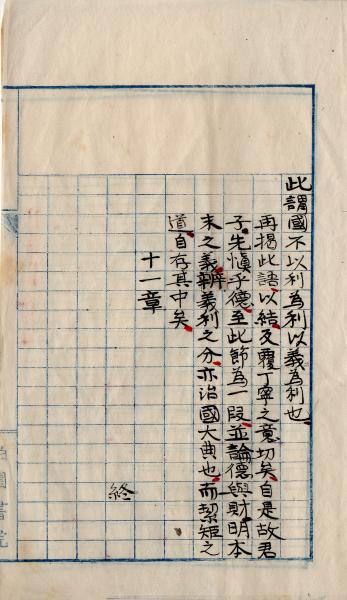 此謂國不以利為利以義為利也
再揭此語以結反覆丁寧之意切矣自是故君
子先愼乎德至此節為一段並論德與財明本
末之義辨義利之分亦治國大典也而絜矩之
道自存其中矣
十一章
終
書院